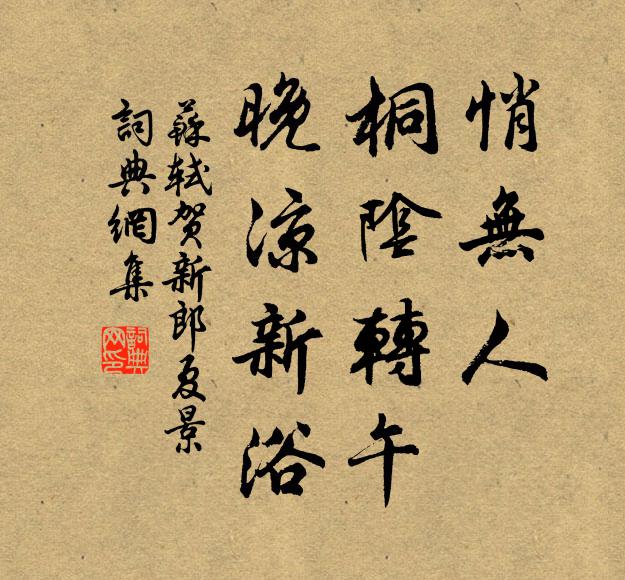 悄無人
桐陰轉午
晚涼新浴
蘇軾賀新郎夏景
詞典網集
詞典网印